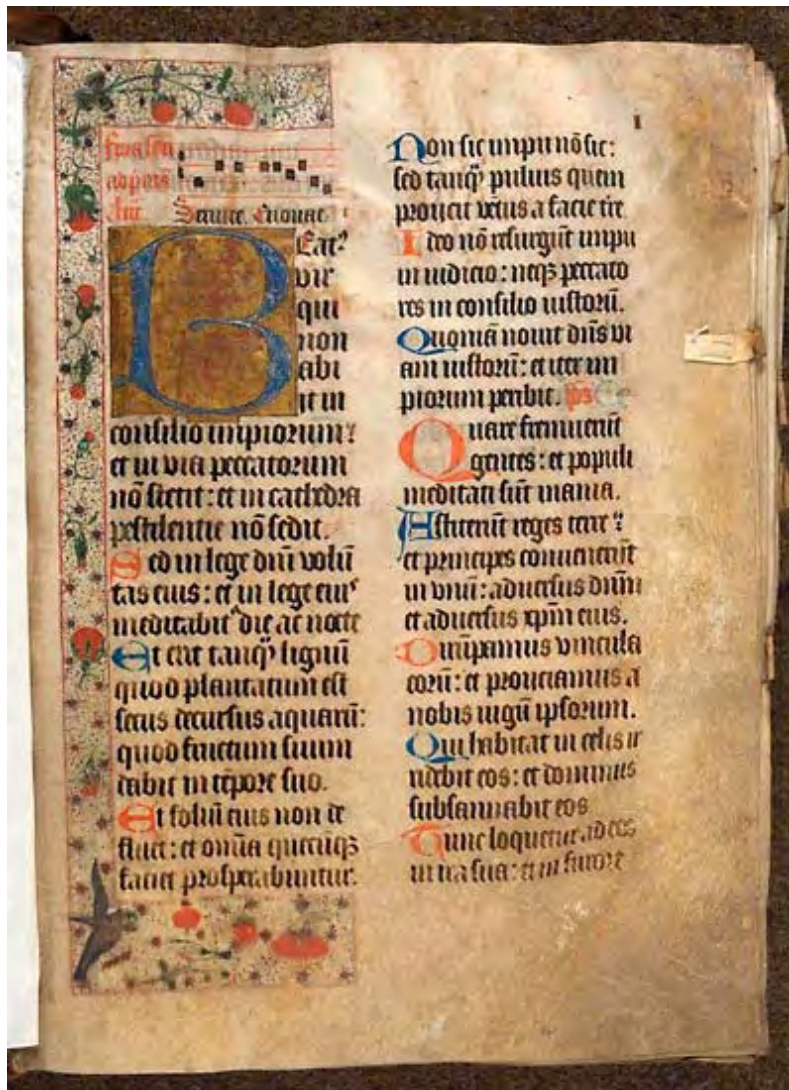 Feria scđa
ad prīs
añt. Servite. Euouae.
Beatꝰ
vir
qui
non
abi
it in
consilio impiorum:
et in via peccatorum
nō stetit: et in cathedra
pestilentie nō sedit.
Sed in lege dn̄i volū
tas eius: et in lege eiꝰ
meditabit᷑ die ac nocte
Et erit tanq̄ꝫ lignū
quod plantatum est
secus decursus aquarū:
quod fructum suum
dabit in tēpore suo.
Et foliū eius non de
fluet: et om̄ia quecūqꝫ
faciet prosperabuntur.
I
Non sic impii nō sic:
sed tanq̄ꝫ puluis quem
proiicit vētus a facie t̄re
Ideo nō resurgūt impii
in iudicio: neqꝫ peccato
res in consilio iustorū.
Quoniā nouit dn̄s vi
am iustorū: et iter im
piorum peribit. ps
Quare fremuerūt
gentes: et populi
meditati sūt inania.
Astiterūt reges terre:
et principes conuenerūt
in vnū: aduersus dn̄m
et aduersus xp̄m eius.
Dirūpamus vincula
eorū: et proiiciamus a
nobis iugū ipsorum.
Qui habitat in celis ir
ridebit eos: et dominus
subsannabit eos
Tunc loquetur ad eos
in ira sua: et in furore